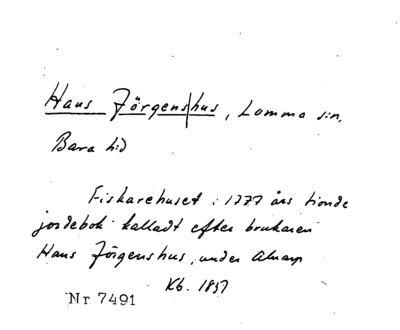 Hans Jörgens|hus, Lomma sn.
Bara hd
Fiskarehuset i 1777 års tionde
jordebok kalladt efter brukaren
Hans Jörgenshus, under Alnarp
Kb. 1857
Nr 7491